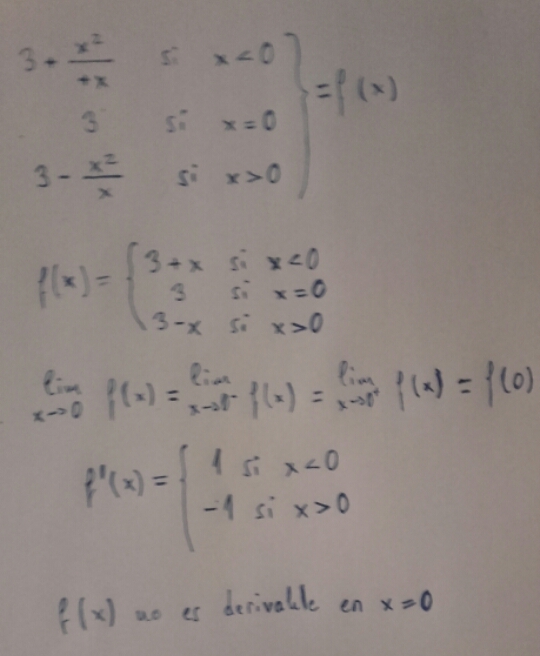 3 + x²/+x si x<0
3 si x=0 } = f(x)
3 - x²/x si x>0
f(x) = { 3+x si x<0
3 si x=0
3-x si x>0
lim x→0 f(x) = lim x→0⁻ f(x) = lim x→0⁺ f(x) = f(0)
f'(x) = { 1 si x<0
-1 si x>0
f(x) no es derivable en x=0